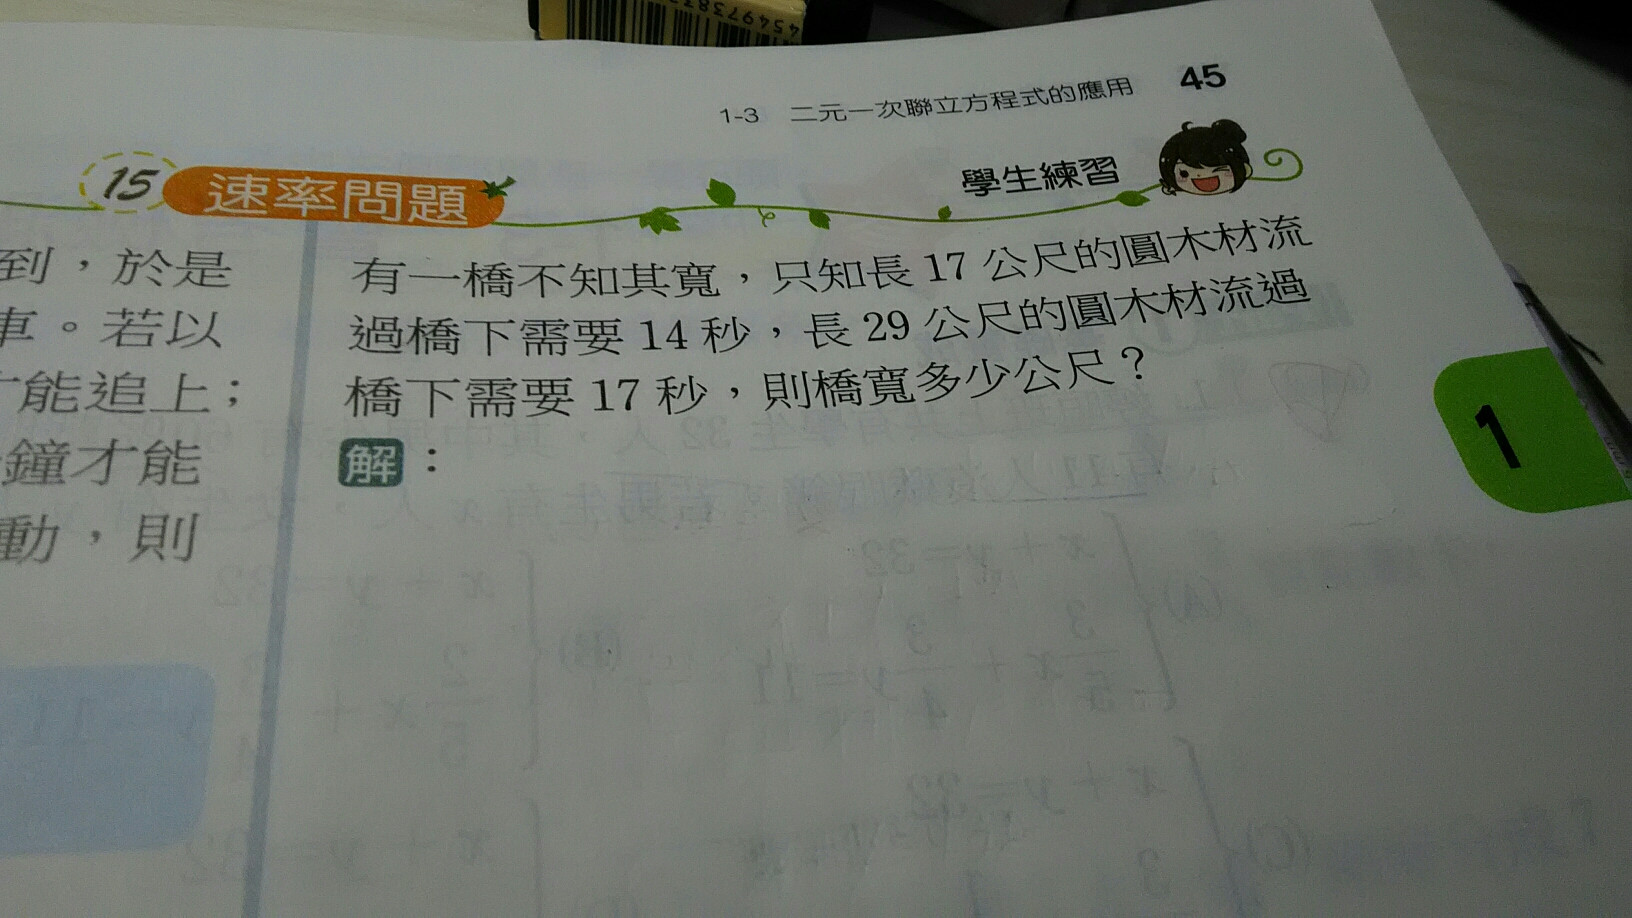 4549738
1-3 二元一次聯立方程式的應用 45
15 速率問題
學生練習
到，於是
車。若以
才能追上；
鐘才能
動，則
有一橋不知其寬，只知長 17 公尺的圓木材流
過橋下需要 14 秒，長 29 公尺的圓木材流過
橋下需要 17 秒，則橋寬多少公尺？
解：
1